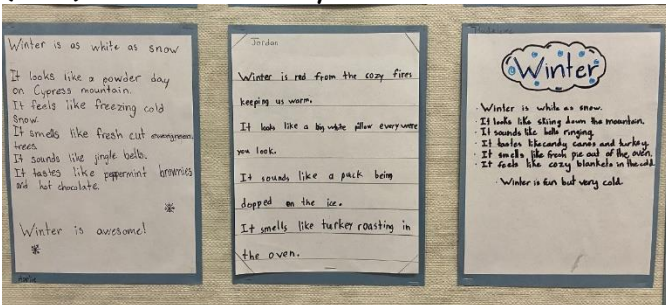 Winter is as white as snow
It looks like a powder day
on Cypress mountain.
It feels like freezing cold
snow.
It smells like fresh cut evergreen
trees.
It sounds like jingle bells.
It tastes like peppermint brownies
and hot chocolate.
Winter is awesome!
Jordan
Winter is red from the cozy fires
keeping us worm.
It looks like a big white pillow everywere
you look.
It sounds like a puck being
dopped on the ice.
It smells like turkey roasting in
the oven.
Winter
· Winter is white as snow.
· It looks like skiing down the mountain.
· It sounds like bells ringing
· It tastes like candy canes and turkey.
· It smells like fresh pie out of the oven.
· It feels like cozy blankets in the cold.
· Winter is fun but very cold.